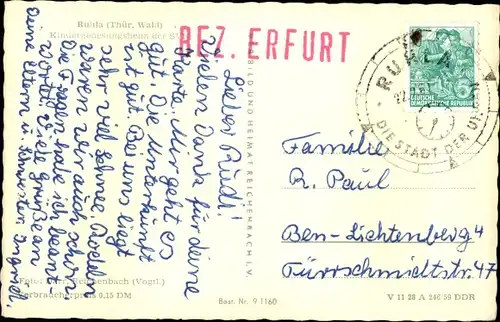 Ruhla (Thür. Wald)
Kindergenesungsheim der SV
BEZ. ERFURT
Lieber Rudi!
Vielen Dank für deine
Karte. Mir geht es
gut. Die Unterkunft
ist gut. Bei uns liegt
sehr viel Schnee. Rodeln
waren wir auch schon.
Die Fragen habe ich beant-
wortet. Viele Grüße an
deine Eltern u. Schwester. Ingrid.
Foto: Reichenbach (Vogtl.)
Verbraucherpreis 0,15 DM
BILD UND HEIMAT REICHENBACH I. V.
Best. Nr. 9 1160
RUHLA
DIE STADT DER UHREN
DEUTSCHE
DEMOKRATISCHE REPUBLIK
Familie
R. Paul
Bln-Lichtenberg 4
Türrschmidtstr. 32
V 11 28 A 246/56 DDR